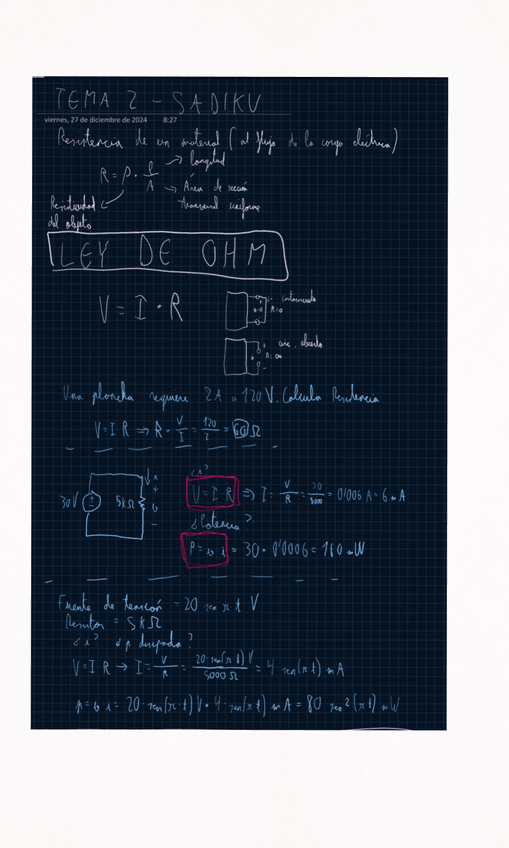 TEMA 2 - SADIKU
viernes, 27 de diciembre de 2024 8:27
Resistencia de un material (al flujo de la carga eléctrica)
R = ρ · l/A → longitud
→ Área de sección transversal uniforme
Resistividad del objeto
LEY DE OHM
V = I · R
cortocircuito
R=0
circ. abierto
R=∞
Una plancha requiere 2A a 120V. Calcula Resistencia
V=I R ⇒ R = V/I = 120/2 = 60 Ω
30V
5kΩ
i
+
v
-
¿i?
V=I R ⇒ I = V/R = 30/5000 = 0'006 A = 6 mA
¿Potencia?
P = v i = 30 · 0'0006 = 180 mW
Fuente de tensión = 20 sen π t V
Resistor = 5kΩ
¿i? ¿p disipada?
V=I R → I = V/R = 20·sen(π t) V/5000 Ω = 4 sen(π t) mA
p = v i = 20·sen(π·t) V · 4·sen(π t) mA = 80 sen²(π t) mW